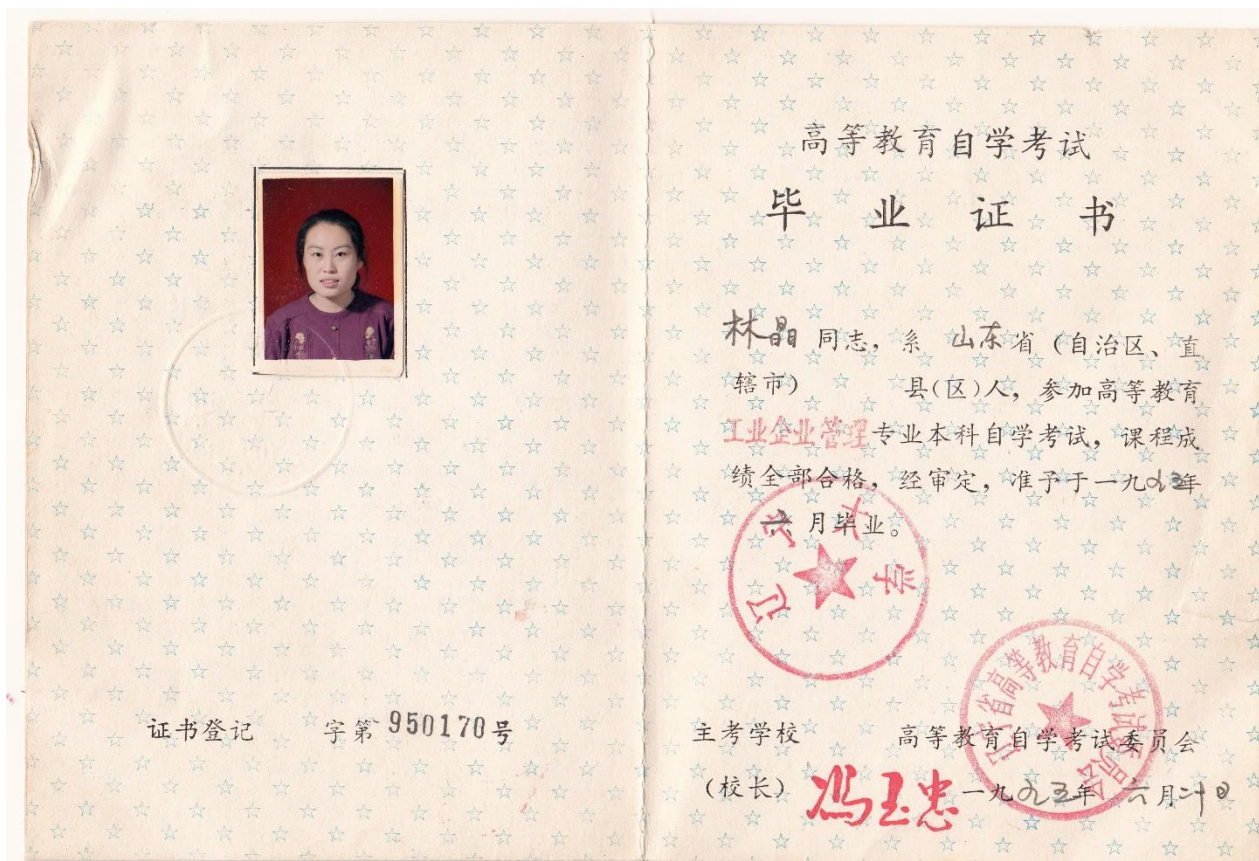 证书登记 字第950170号
高等教育自学考试
毕业证书
林晶同志，系 山东省（自治区、直
辖市） 县(区)人，参加高等教育
工业企业管理专业本科自学考试，课程成
绩全部合格，经审定，准予于一九九五年
六月毕业。
辽宁大学
辽宁省高等教育自学考试委员会
主考学校 高等教育自学考试委员会
(校长) 冯玉忠 一九九五年 六月二十日